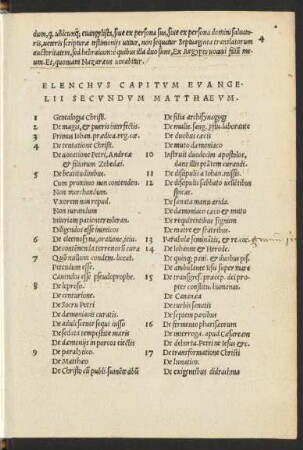 dum, q̃. ubicunq̃; euangelista, siue ex persona sua, siue ex persona domini saluato-
ris, ueteris scripturæ testimonijs utitur, non sequitur septuaginta translatorum
auctoritatem, sed hebraicam: è quibus illa duo sunt, Ex Aegypto uocaui filiũ me-
um. Et, quoniam Nazaræus uocabitur.
4
ELENCHVS CAPITVM EVANGE-
LII SECVNDVM MATTHAEVM.
1 Genealogia Christi.
2 De magis, & pueris interfectis.
3 Primus Iohan. prædica. reg. cæ.
4 De tentatione Christi.
De uocatione Petri, Andreæ
& filiorum Zebedæi.
5 De beatitudinibus.
Cum proximo non contendẽn.
Non mœchandum.
Vxorem non repud.
Non iurandum
Iniuriam patienter toleran.
Diligendos esse inimicos
6 De eleemosyna, oratione, ieiu.
De contemnenda terrenorũ cura
7 Quod nullum condem. liceat.
Petendum esse.
Cauendos esse pseudoprophe.
8 De leproso.
De centurione.
De Socru Petri
De dæmoniacis curatis.
De adulescente sequi iusso
De sedata tempestate maris
De dæmonijs in porcos eiectis
9 De paralytico.
De Matthæo
De Christo cũ publi.
De filia archisynagog
De mulie. sang. flu. laborante
De duobus cæcis
De muto dæmoniaco
10 Instruit duodecim apostolos,
11 De discipulis à Iohan. missis.
12 De discipulis sabbato uellẽtibus
spicas.
De sanata manu arida.
De dæmoniaco cæco & muto
De signum requirentibus
De matre & fratribus
13 Parabola seminatis, &
14 De Iohanne & Herode.
De quinq; pani. & duobus pis.
De ambulante Iesu super mare
15 De transgress. præcep. dei pro-
pter constitu. humanas.
De Cananæa
De turbis curatis
De septem panibus
16 De fermento pharisæorum
De interrog. cæsareæ
De deborta. Petri ne Iesus &c.
17 De transformatione Christi
De lunatico.
De exigentibus didrachma